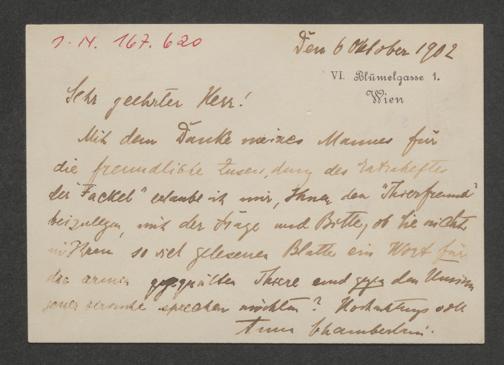 I. N. 167.620
Den 6 Oktober 1902
VI. Blümelgasse 1.
Wien
Sehr geehrter Herr!
Mit dem Danke meines Mannes für
die freundliche Zusendung des Extraheftes
der "Fackel" erlaube ich mir, Ihnen den "Thierfreund"
beizulegen, mit der Frage und Bitte, ob Sie nicht
in Ihrem so viel gelesenen Blatte ein Wort für
die armen gequälten Thiere und gegen den Unsinn
sprechen möchten? Hochachtungsvoll
Anna Chamberlain.